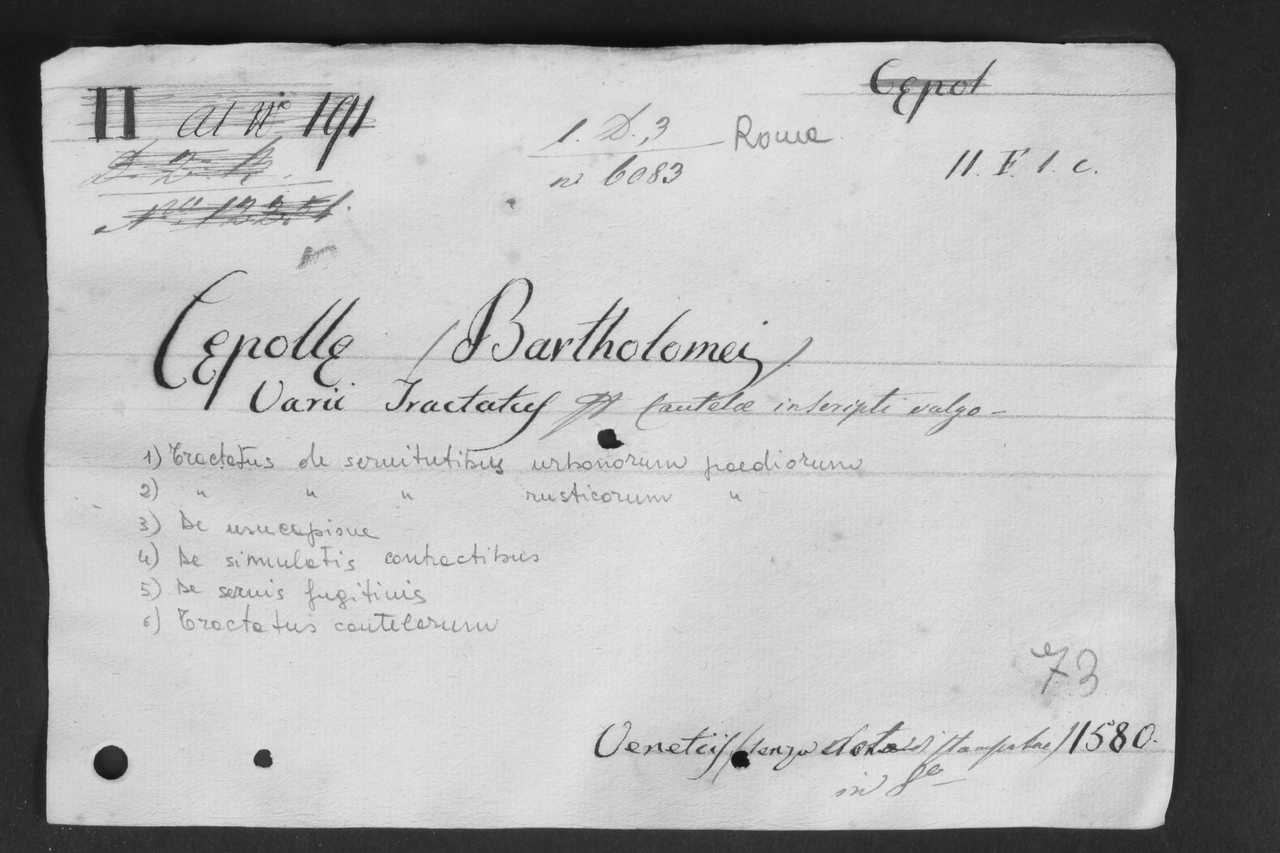 II al N° 191
Cepol
1. D. 3 Roma
n° 6083
II. F. 1. c.
D. 2. h.
N° 13251.
Cepolle (Bartholomei)
Varii Tractatus Cautelae inscripti vulgo -
1) Tractatus de servitutibus urbanorum praediorum
2) " " " rusticorum "
3) De usucapione
4) De simulatis contractibus
5) De servis fugitivis
6) Tractatus cautelarum
73
Venetiis (senza data di stampatore) 1580.
in 8°